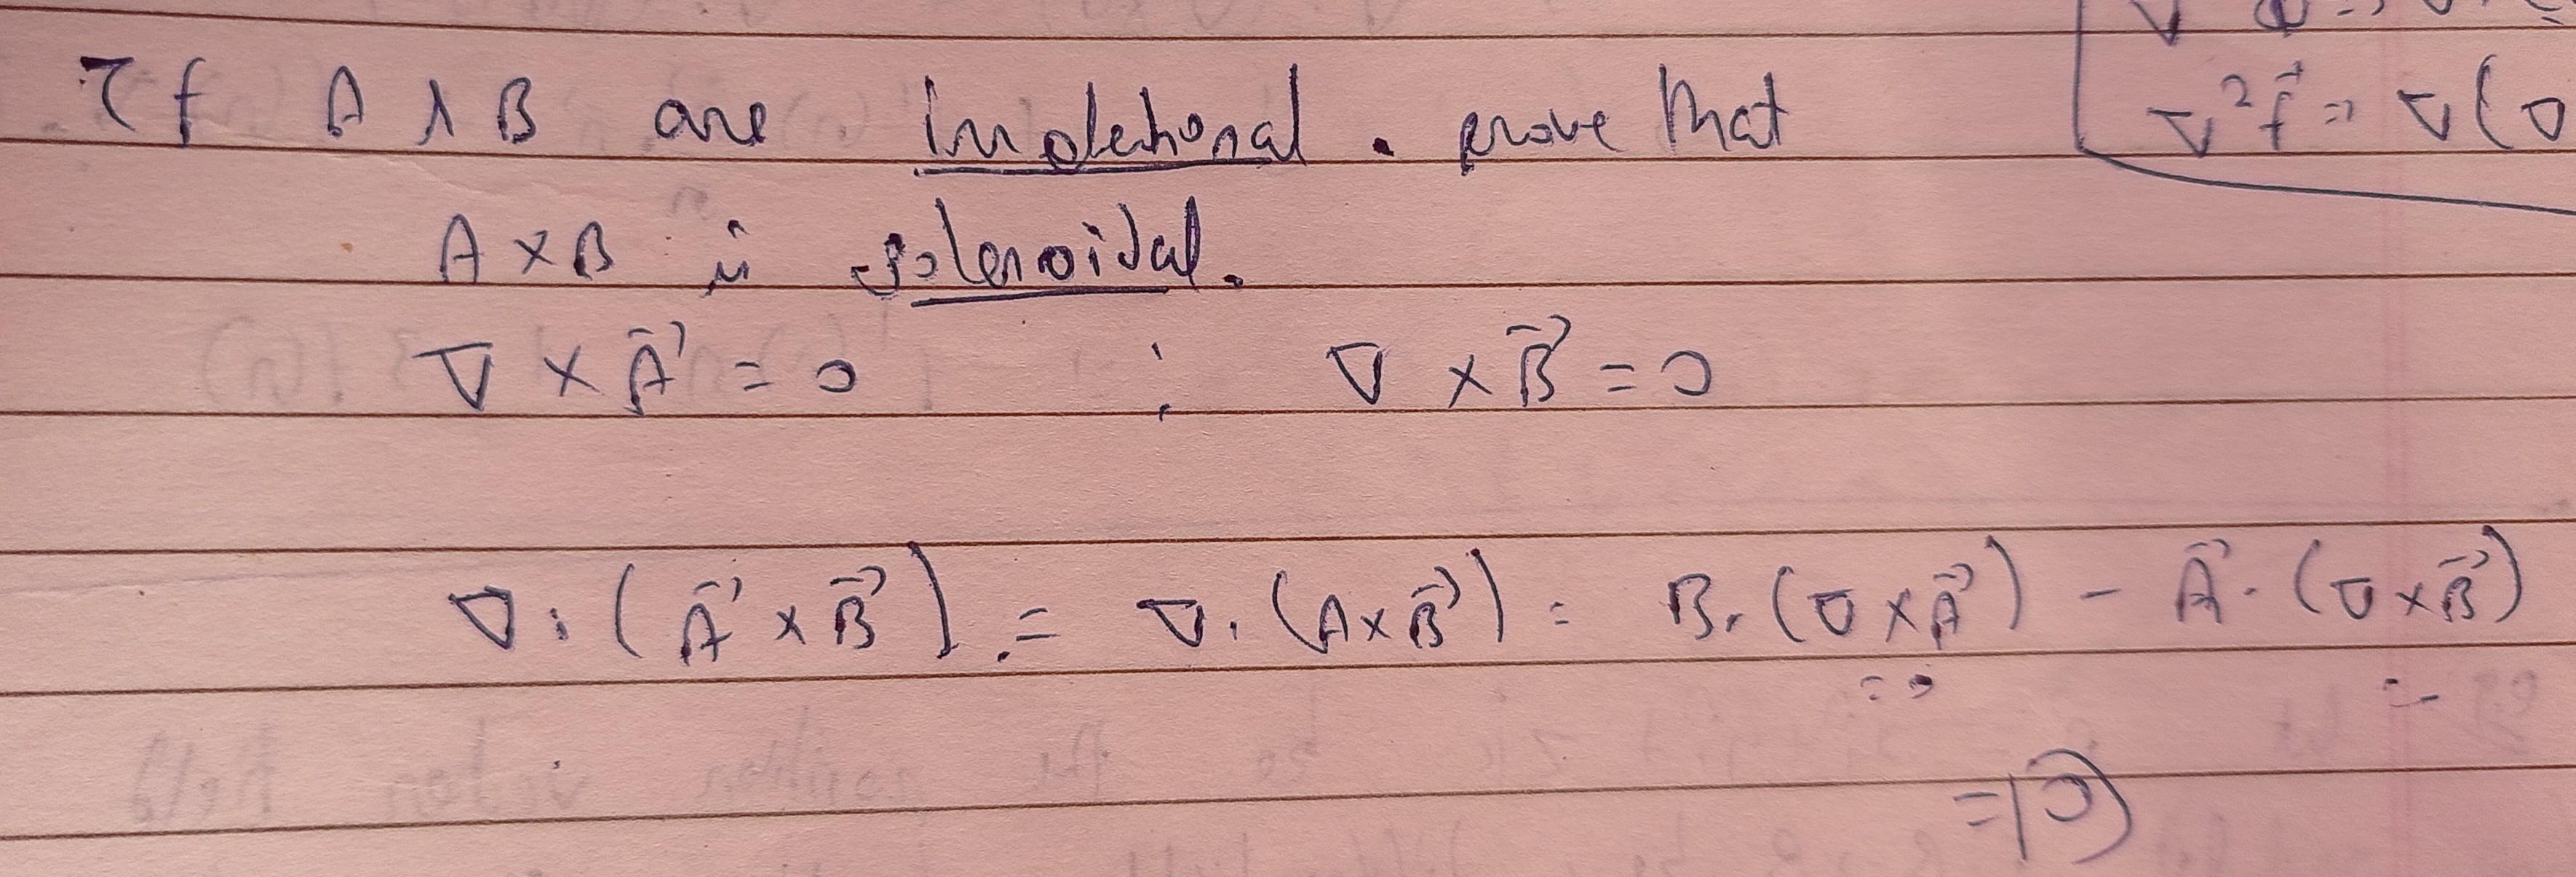 If A & B are irrotational. prove that
∇²f⃗ = ∇(∇
A×B is solenoidal.
∇ × A⃗ = 0 ; ∇ × B⃗ = 0
∇.(A⃗ × B⃗) = ∇.(A×B⃗) = B.(∇×A⃗) - A⃗.(∇×B⃗)
=0 =
=0